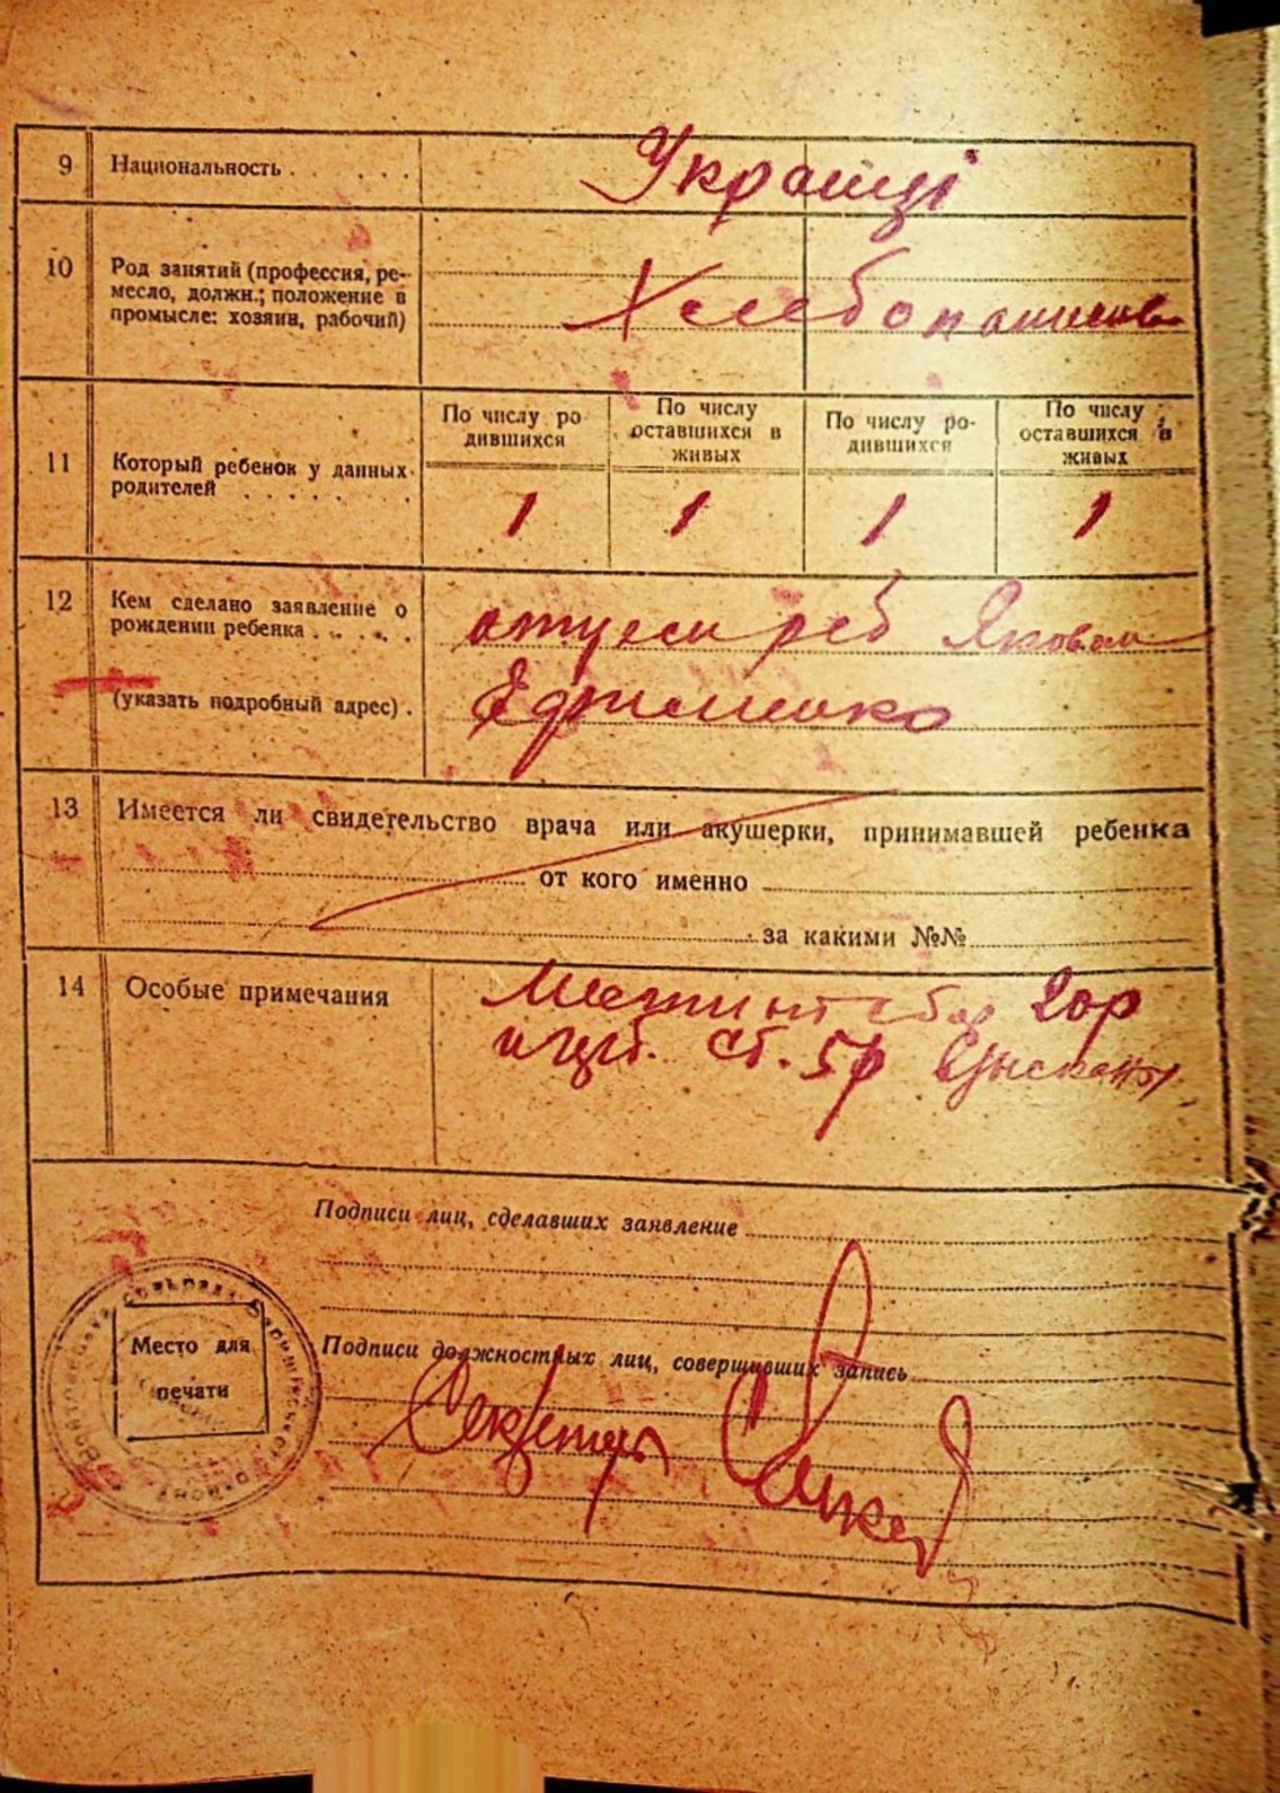 9 Национальность . . . . . Украинці
10 Род занятий (профессия, ре-
месло, должн.; положение в
промысле: хозяин, рабочий)
Хлебопашество
11 Который ребенок у данных
родителей . . . . . . .
По числу ро-
дившихся
По числу
оставшихся в
живых
По числу ро-
дившихся
По числу
оставшихся в
живых
1 1 1 1
12 Кем сделано заявление о
рождении ребенка . . . . .
(указать подробный адрес) .
отцем реб Яковом
Ефименко
13 Имеется ли свидетельство врача или акушерки, принимавшей ребенка
от кого именно
за какими №№
14 Особые примечания
сбор 20р
сб. 5р взысканы
Подписи лиц, сделавших заявление
Место для
печати
Подписи должностных лиц, совершивших запись
Секретарь